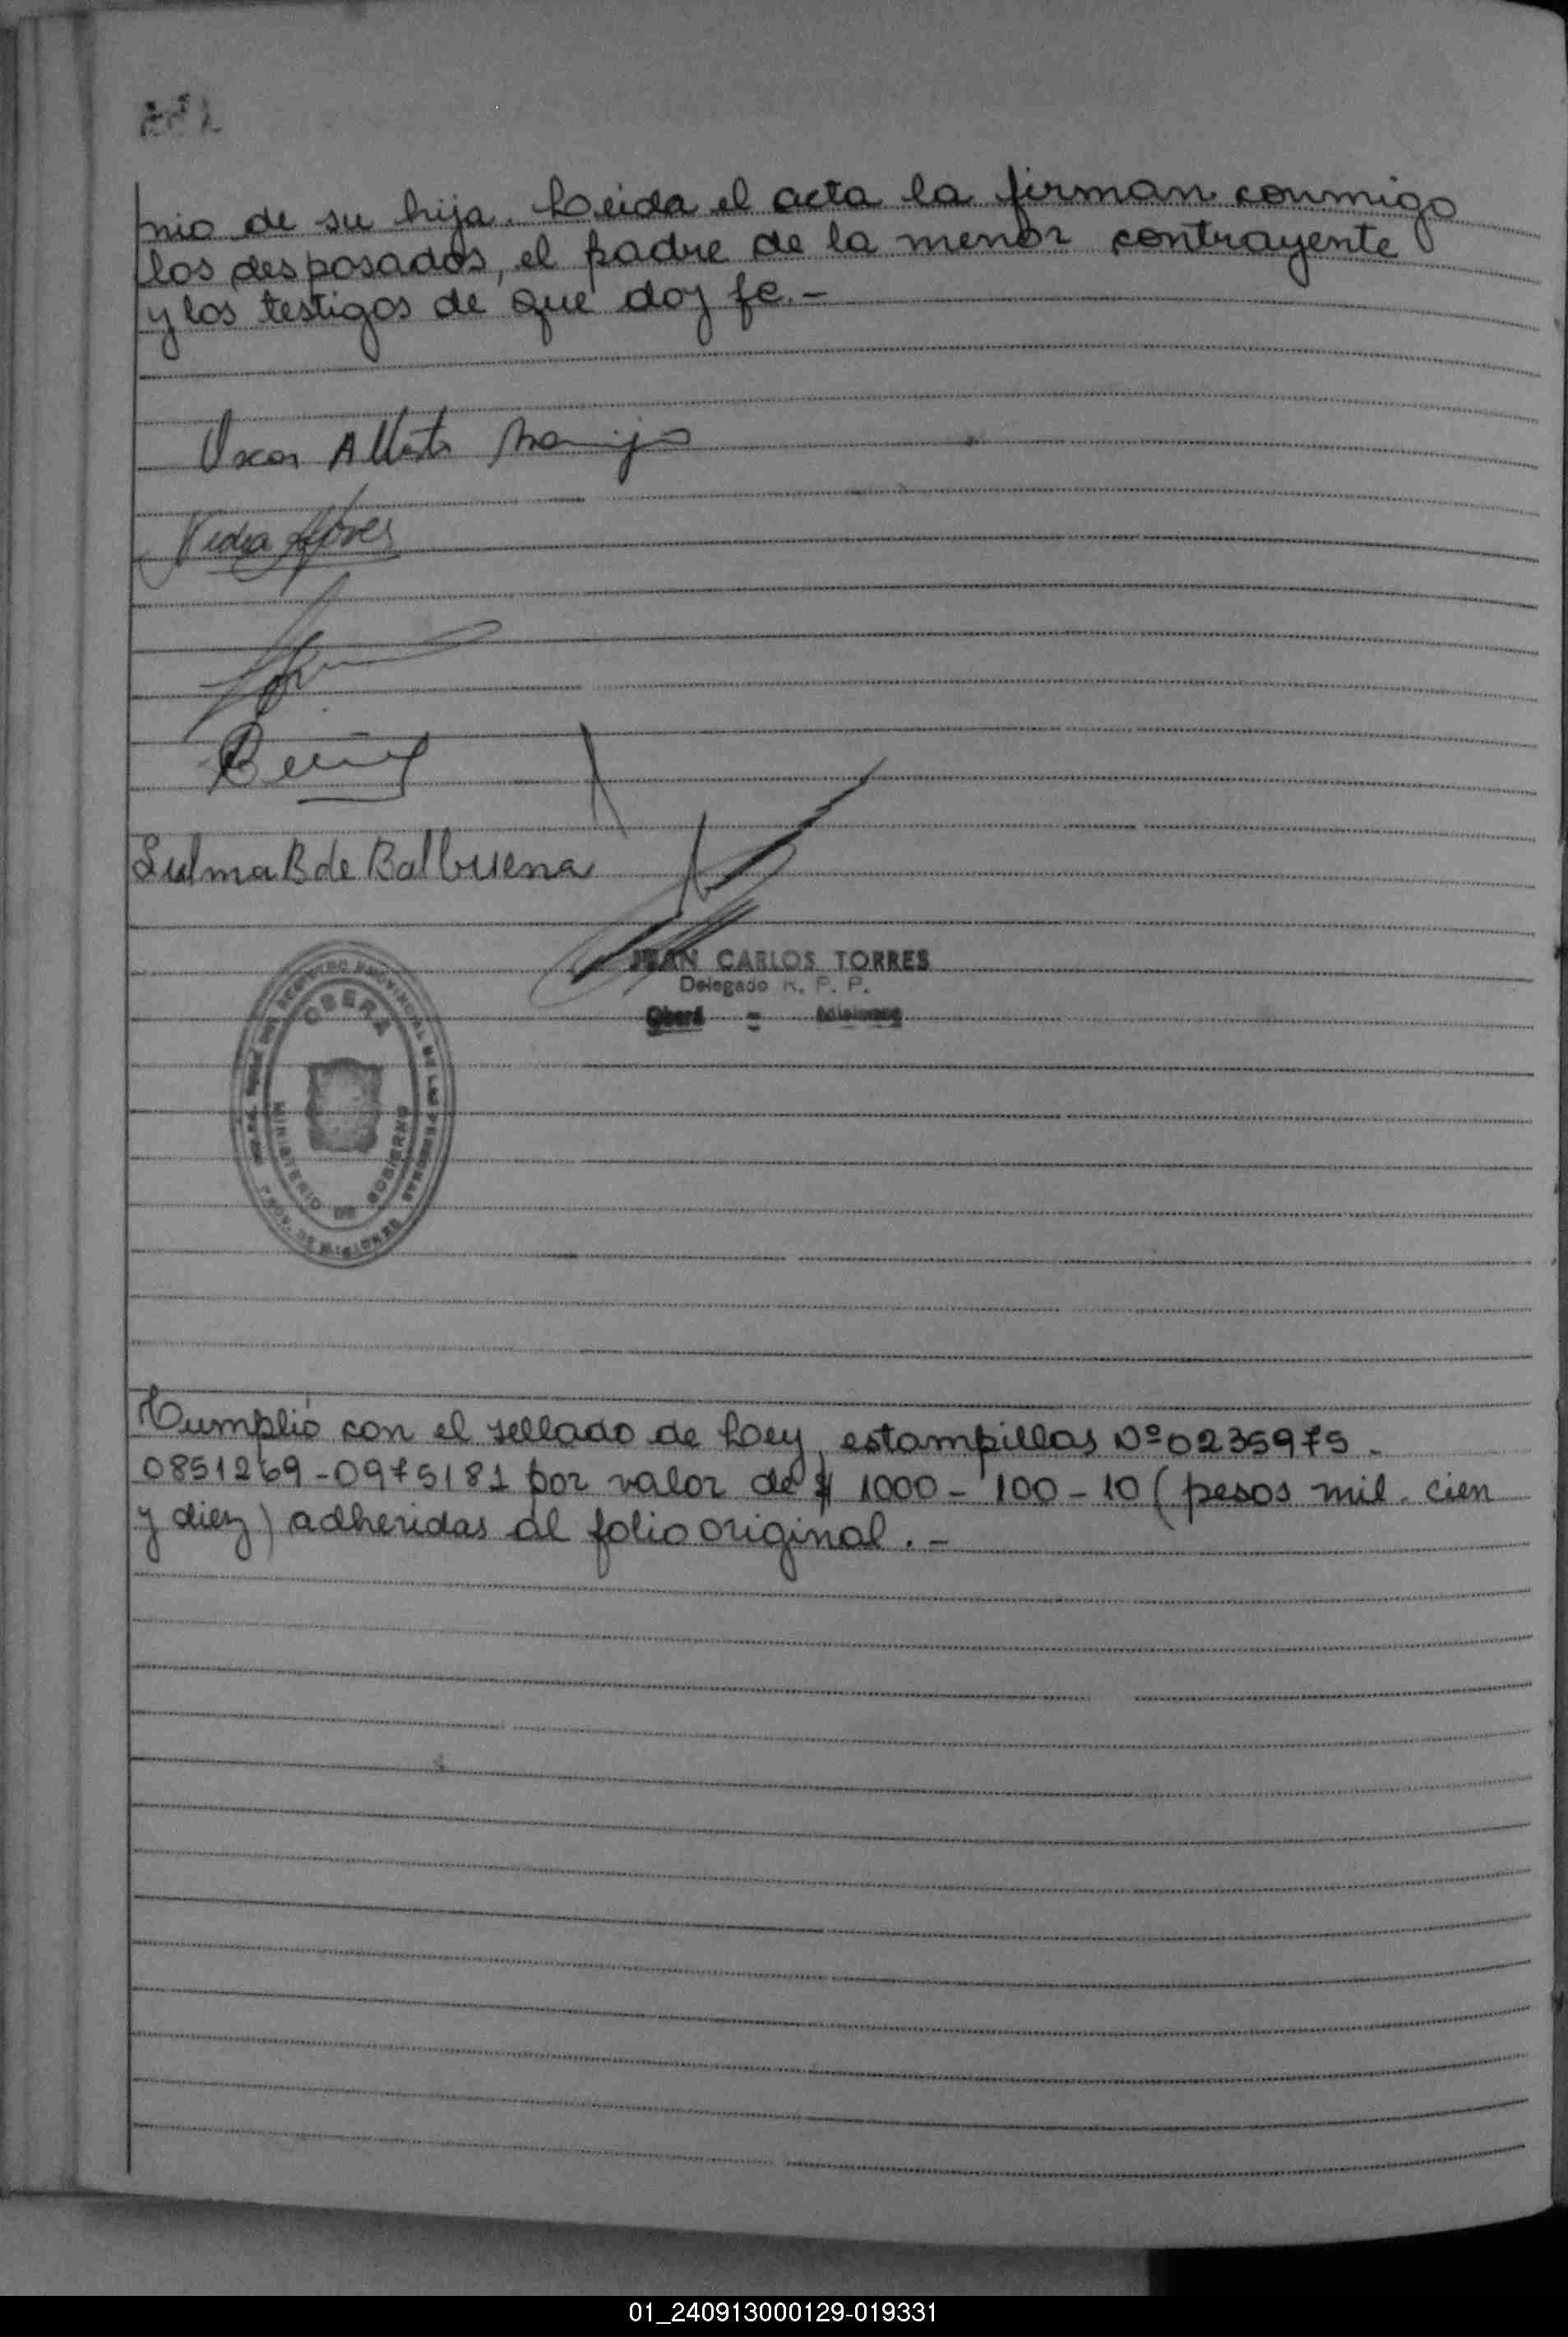 nio de su hija. Leida el acta la firman conmigo
los desposados, el padre de la menor contrayente
y los testigos de que doy fe.-
Oscar Alberto
Sulma B de Balbuena
JUAN CARLOS TORRES
Delegado R. P. P.
Oberá - Misiones
OBERA
MINISTERIO DE GOBIERNO
PROV. DE MISIONES
Cumplió con el sellado de Ley, estampillas Nº 0235975-
0851269-0975181 por valor de $ 1000- 100-10 (pesos mil. cien
y diez) adheridas al folio original.-
01_240913000129-019331